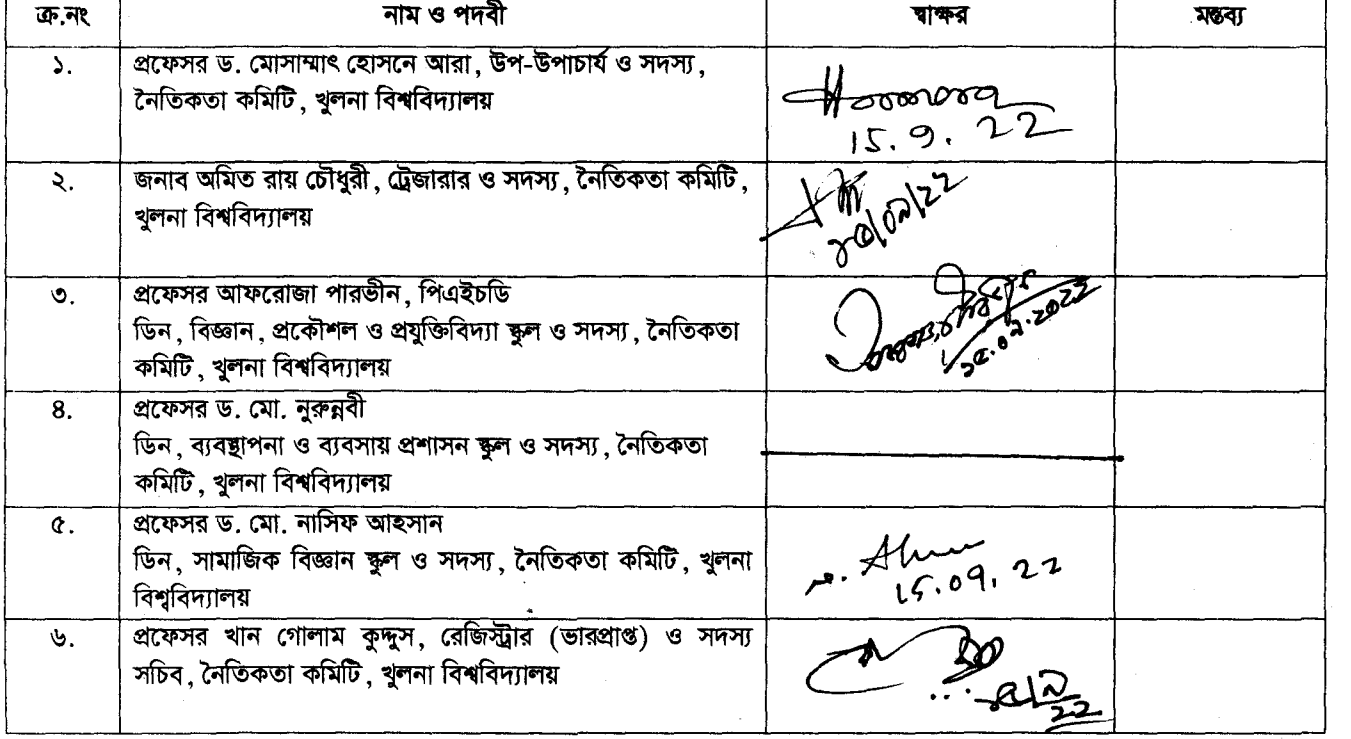 ক্র.নং নাম ও পদবী স্বাক্ষর মন্তব্য
১. প্রফেসর ড. মোসাম্মাৎ হোসনে আরা, উপ-উপাচার্য ও সদস্য,
নৈতিকতা কমিটি, খুলনা বিশ্ববিদ্যালয়
15.9.22
২. জনাব অমিত রায় চৌধুরী, ট্রেজারার ও সদস্য, নৈতিকতা কমিটি,
খুলনা বিশ্ববিদ্যালয়
৩. প্রফেসর আফরোজা পারভীন, পিএইচডি
ডিন, বিজ্ঞান, প্রকৌশল ও প্রযুক্তিবিদ্যা স্কুল ও সদস্য, নৈতিকতা
কমিটি, খুলনা বিশ্ববিদ্যালয়
৪. প্রফেসর ড. মো. নুরুন্নবী
ডিন, ব্যবস্থাপনা ও ব্যবসায় প্রশাসন স্কুল ও সদস্য, নৈতিকতা
কমিটি, খুলনা বিশ্ববিদ্যালয়
৫. প্রফেসর ড. মো. নাসিফ আহসান
ডিন, সামাজিক বিজ্ঞান স্কুল ও সদস্য, নৈতিকতা কমিটি, খুলনা
বিশ্ববিদ্যালয়
15.09.22
৬. প্রফেসর খান গোলাম কুদ্দুস, রেজিস্ট্রার (ভারপ্রাপ্ত) ও সদস্য
সচিব, নৈতিকতা কমিটি, খুলনা বিশ্ববিদ্যালয়